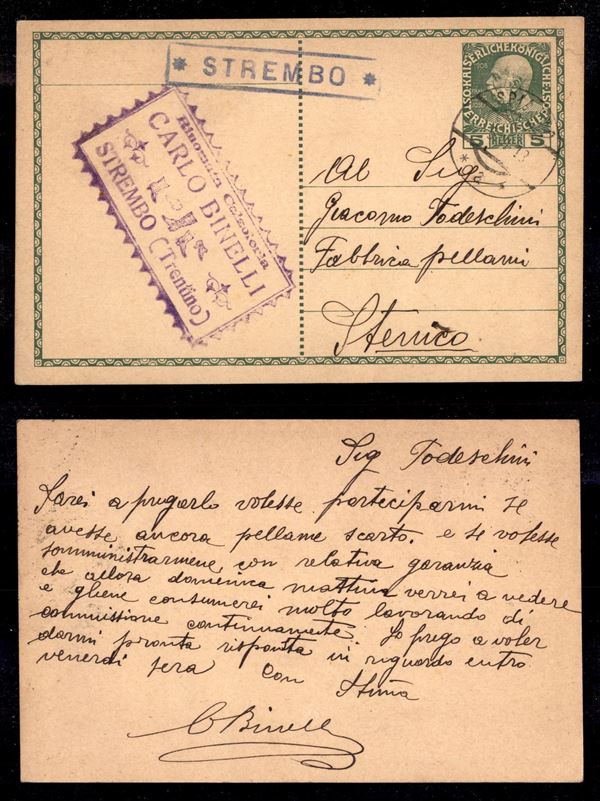 * STREMBO *
Rinomata Calzoleria
CARLO BINELLI
STREMBO (Trentino)
KAISERLICHEKÖNIGLICHE
ÖSTERREICHISCHE
5 HELLER 5
Al Sig
Giacomo Todeschini
Fabbrica pellami
Stenico
Sig Todeschini
Sarei a pregarlo volesse parteciparmi se
avesse ancora pellame scarto. e se volesse
somministrarmene con relativa garanzia
che allora domenica mattina verrei a vedere
e gliene consumerei molto lavorando di
commissione continuamente. Lo prego a voler
darmi pronta risposta in riguardo entro
venerdi sera con Stima
C Binelli